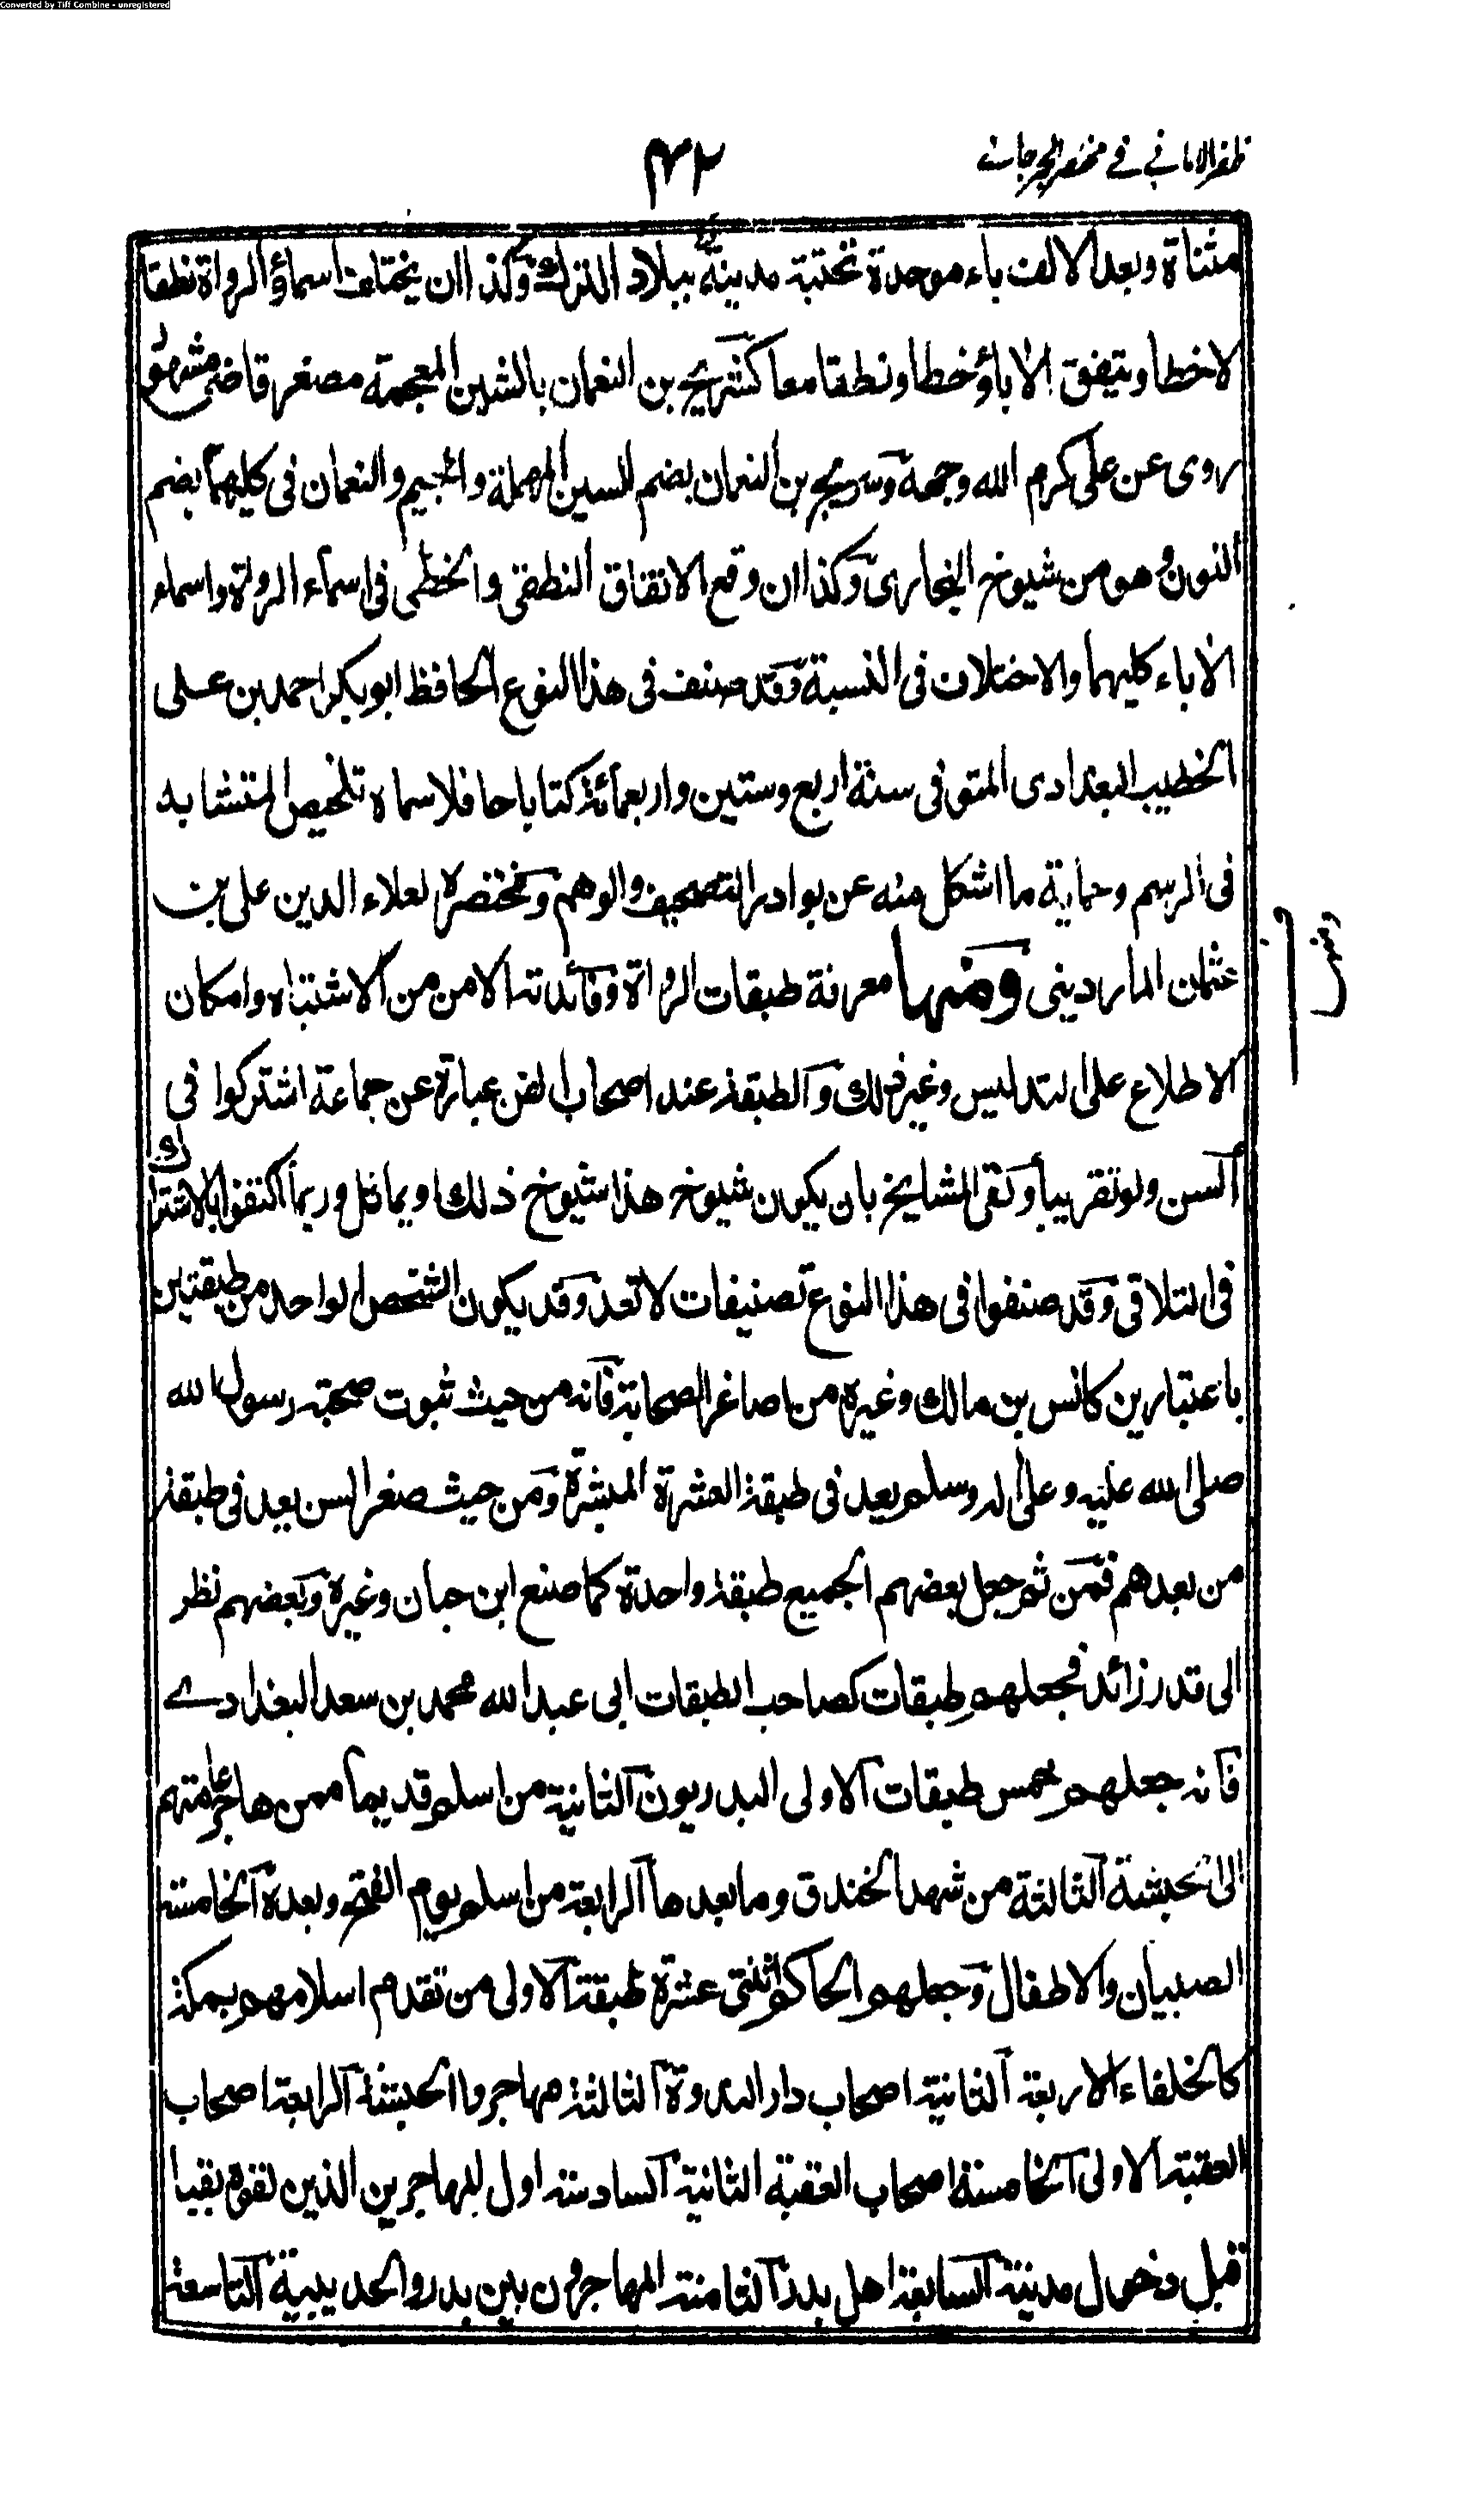 Converted by Tiff Combine - unregistered
ظفر الامانی فی مختصر الجرجانی
٤٢
مثناة وبعد الالف باء موحدة تحتية مدينة ببلاد الترك وكذا ان يختلف اسماؤ الرواة نطقا
لاخطا ويتفق الاباؤ خطا ونطقا معا كشريح بن النعمان بالشين المعجمة مصغر قاض مشهور
روى عن على كرم الله وجهه وسريج بن النعمان بضم السين المهملة والجيم والنعمان فى كليهما بضم
النون وهو من شيوخ البخارى وكذا ان وقع الاتفاق النطقى والخطى فى اسماء الرواة واسماء
الاباء كليهما والاختلاف فى النسبة وقد صنف فى هذا النوع الحافظ ابو بكر احمد بن على
الخطيب البغدادى المتوفى سنة اربع وستين واربعمائة كتابا حافلا سماه تلخيص المتشابه
فى الرسم وحماية ما اشكل منه عن بوادر التصحيف والوهم ومختصره لعلاء الدين على بن
عثمان الماردينى ومنها معرفة طبقات الرواة وفائدته الامن من الاشتباه وامكان
الاطلاع على التدليس وغير ذلك والطبقة عند اصحاب الفن عبارة عن جماعة اشتركوا فى
السن ولو تقريبا وفى المشايخ بان يكون شيوخ هذا شيوخ ذلك او يماثل وربما اكتفوا بالاشتراك
فى التلاقى وقد صنفوا فى هذا النوع تصنيفات لا تعد وقد يكون الشخص الواحد من طبقتين
باعتبارين كانس بن مالك وغيره من اصاغر الصحابة فانه من حيث ثبوت صحبته رسول الله
صلى الله عليه وعلى اله وسلم يعد فى طبقة العشرة المبشرة ومن حيث صغر السن يعد فى طبقة
من بعدهم فمن ثم جعل بعضهم الجميع طبقة واحدة كما صنع ابن حبان وغيره وبعضهم نظر
الى قدر زائد فجعلهم طبقات كصاحب الطبقات ابى عبد الله محمد بن سعد البغدادے
فانه جعلهم خمس طبقات الاولى البدريون الثانية من اسلم قديما ممن هاجر عامتهم
الى حبشة الثالثة من شهد الخندق وما بعدها الرابعة من اسلم يوم الفتح وبعده الخامسة
الصبيان والاطفال وجعلهم الحاكم اثنتى عشرة طبقة الاولى من تقدم اسلامهم بمكة
كالخلفاء الاربعة الثانية اصحاب دار الندوة الثالثة مهاجروا الحبشة الرابعة اصحاب
العقبة الاولى الخامسة اصحاب العقبة الثانية السادسة اول المهاجرين الذين لقوه بقبا
قبل دخول مدينة السابعة اهل بدر الثامنة المهاجرون بين بدر والحديبية التاسعة